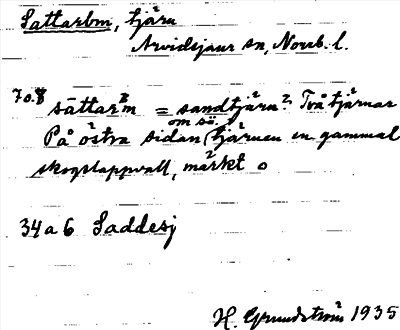 Sattarbm, tjärn
Arvidsjaur sn, Norrb. l.
70.8 såttarm = sandtjärn? Två tjärnar
På östra sidan om sö. tjärnen en gammal
skogslappvall, märkt o
34 a 6 Saddesj
H. Grundström 1935